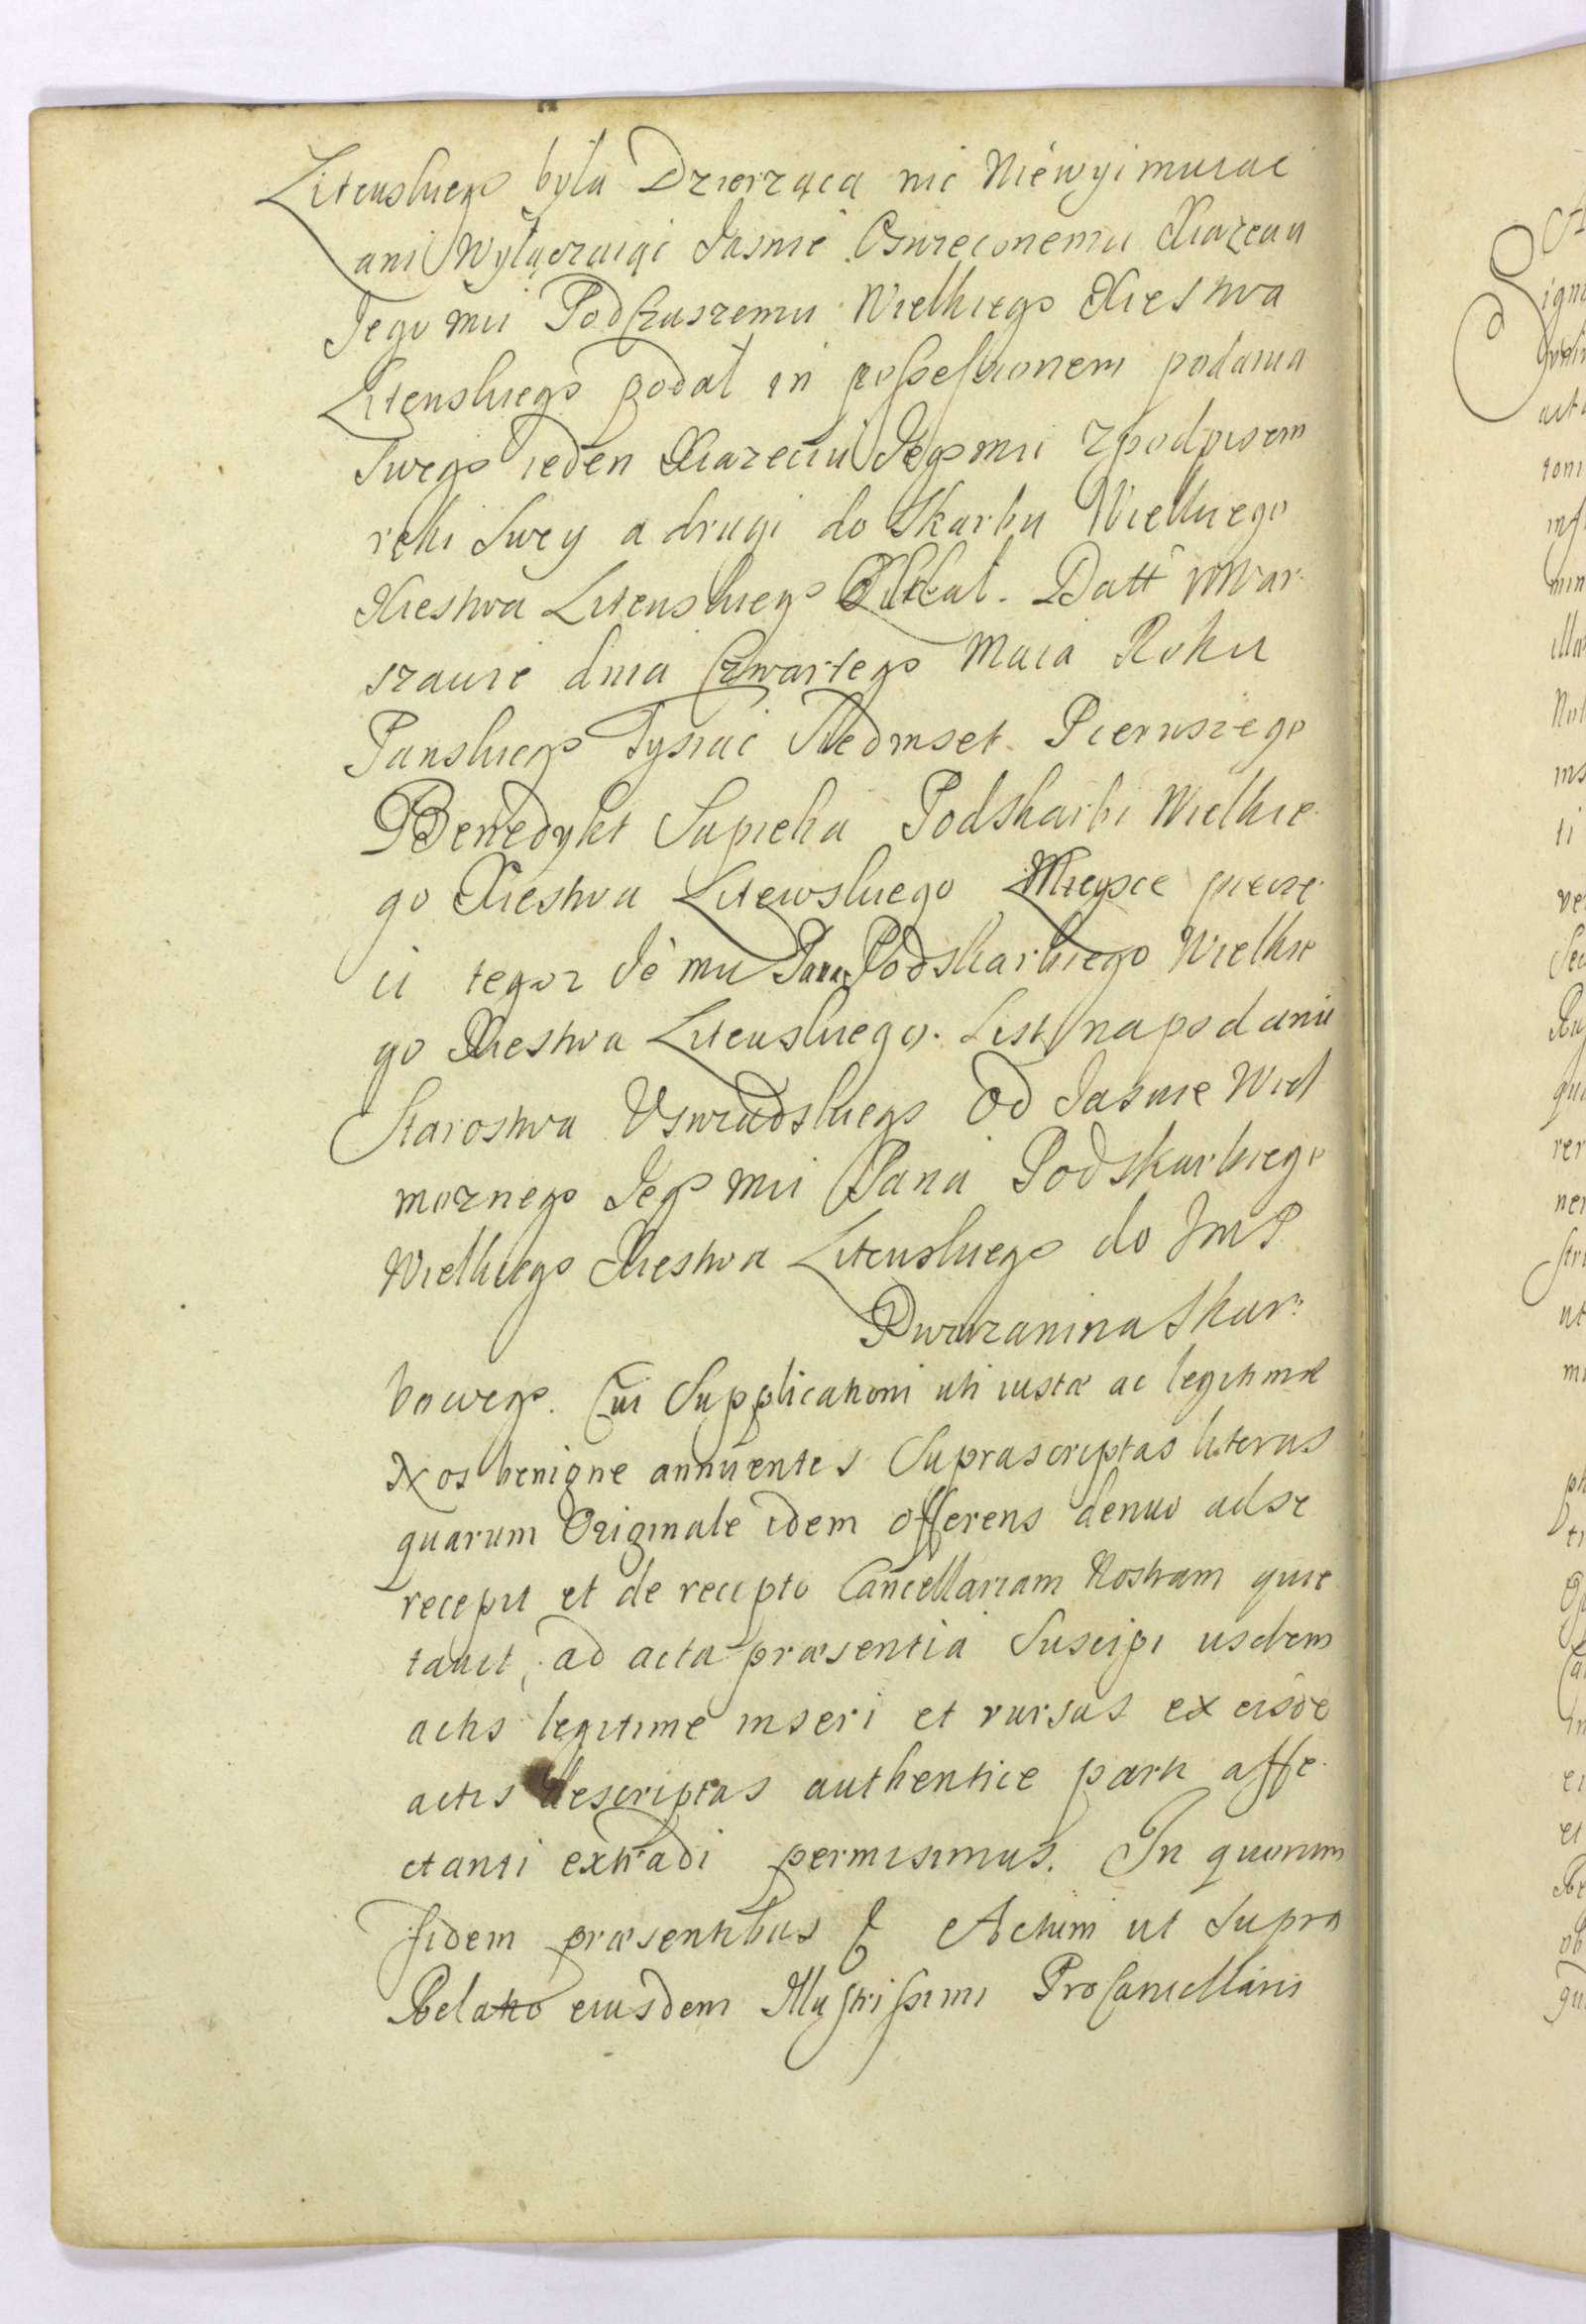 Litewskiego była Dzierząca nic Niewyimuiac
ani Wyłączaiąc Jasnie Oswieconemu Xiazęciu
Jego mci Podczaszemu Wielkiego Xiestwa
Litewskiego podał in possessionem podania
Swego ieden Xiazeciu Jego mci z podpisem
ręki Swey a drugi do Skarbu Wielkiego
Xiestwa Litewskiego Datt w War
szawie dnia Czwartego Maia Roku
Panskiego Tysiąc Siedmset Pierwszego
Benedykt Sapieha Podskarbi Wielkie
go Xiestwa Litewskiego Mieysce pieczę
ci tegoz Je mci Pana Podskarbiego Wielkie
go Xiestwa Litewskiego. List na podanie
Starostwa Uswiadskiego Od Jasnie Wiel
moznego Jego mci Pana Podskarbiego
Wielkiego Xiestwa Litewskiego do JmP
Dworzanina Skar:
bowego. Cui Supplicationi uti iustæ ac legitimæ
Nos benigne annuentes Suprascriptas literas
quarum Originale idem offerens denuo ad se
recepit et de recepto Cancellariam Nostram quie
tavit, ad acta præsentia Suscipi iisdem
actis legitime inseri et rursus ex eisde
actis descriptas authentice parti affe
ctanti extradi permisimus. In quorum
fidem præsentibus Actum ut supra
Relatio eiusdem Illustrissimi ProCancellarii